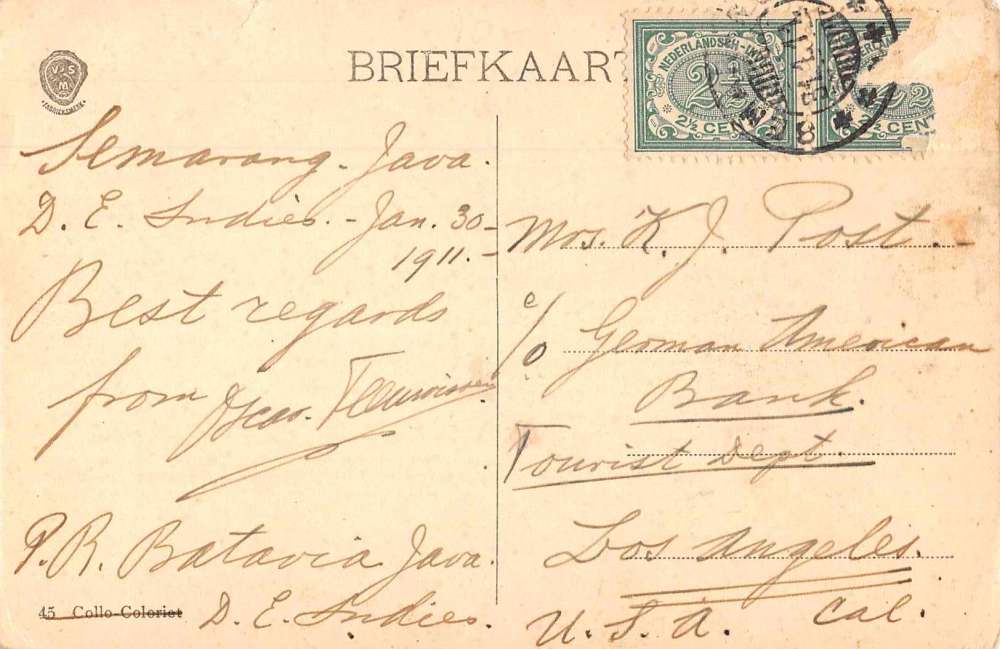 V S
M
FABRIEKSMERK
BRIEFKAART
NEDERLANDSCH-INDIË
2½
2½ CENT
2½ CENT
Semarang. Java.
D. E. Indies. - Jan. 30 -
1911. -
Best regards
from Oscar
P. R. Batavia Java.
D. E. Indies.
45 Collo-Coloriet
Mrs. K. J. Post. -
c/o German American
Bank.
Tourist Dept.
Los Angeles.
U. S. A. Cal.